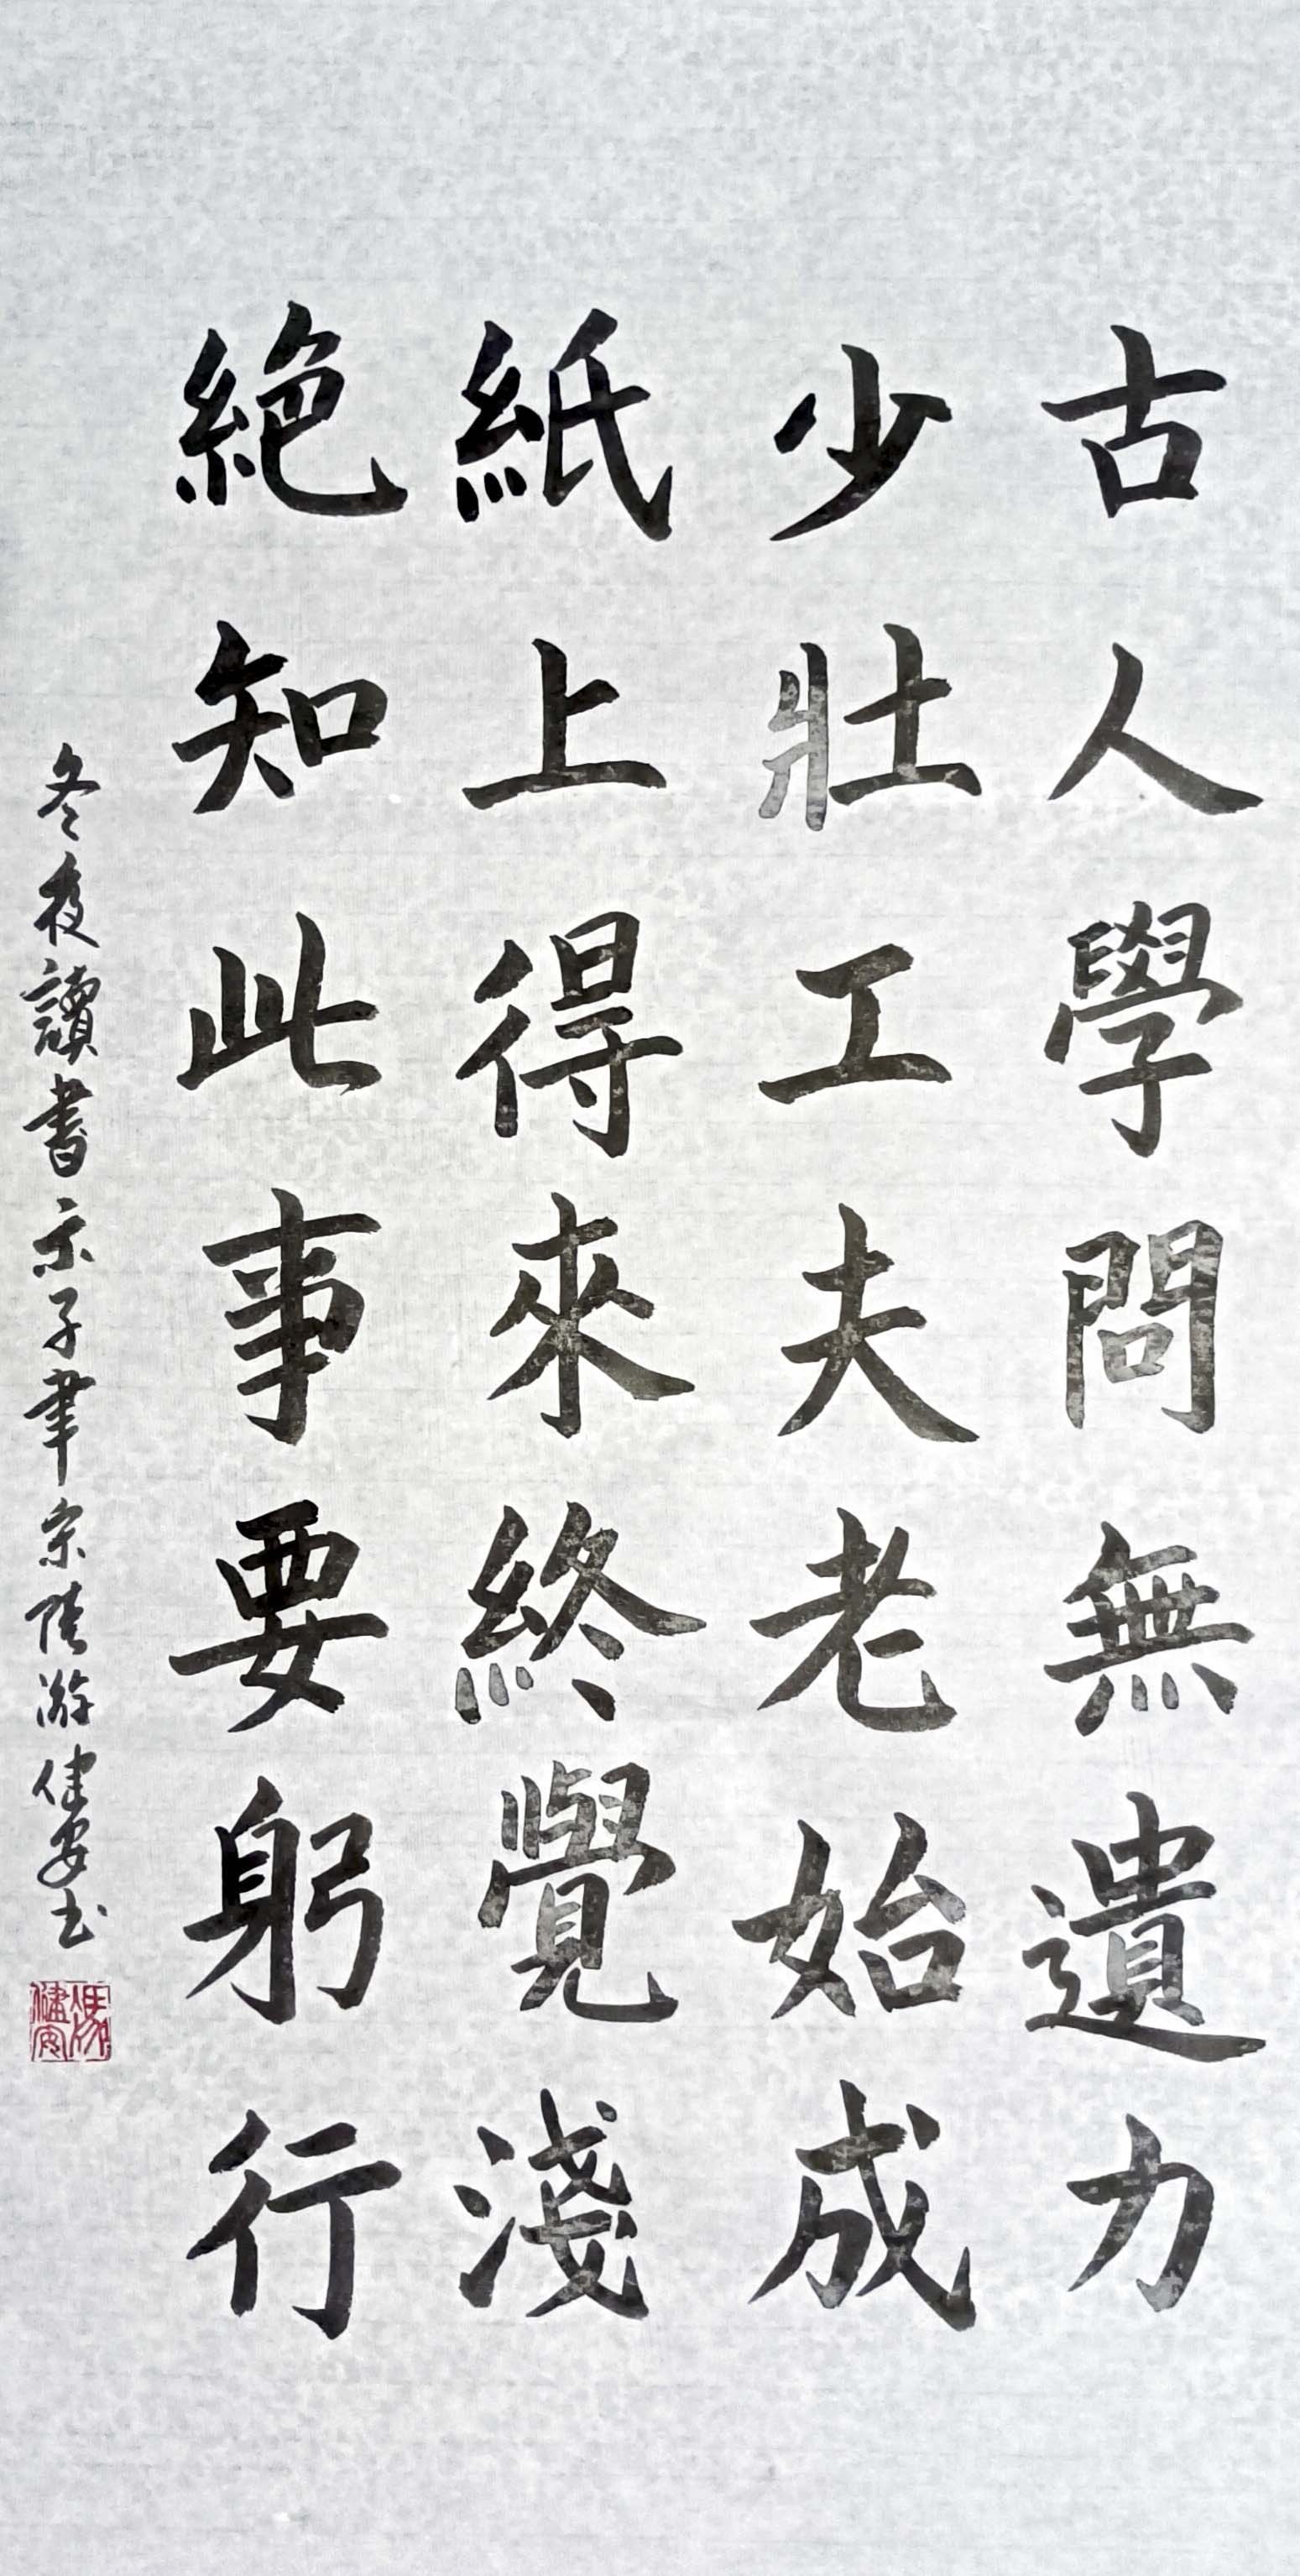 古人學問無遺力
少壯工夫老始成
紙上得來終覺淺
絕知此事要躬行
冬夜讀書示子聿宗陸游健安书
馮健安